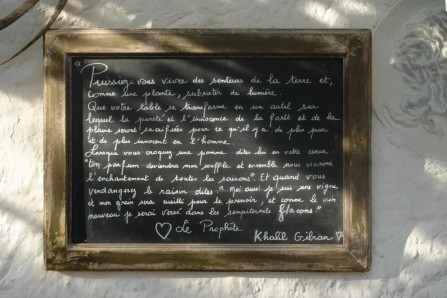 "Puissiez-vous vivre des senteurs de la terre et,
comme une plante, subsister de lumière.
Que votre table se transforme en un autel sur
lequel la pureté et l'innocence de la forêt et de la
plaine seront sacrifiées pour ce qu'il y a de plus pur
et de plus innocent en l'homme.
Lorsque vous croquez une pomme dites lui en votre coeur:
"ton parfum deviendra mon souffle et ensemble nous vivrons
l'enchantement de toutes les saisons". Et quand vous
vendangerez le raisin dites: "Moi aussi je suis une vigne
et mon grain sera cueilli pour le pressoir, et comme le vin
nouveau je serai versé dans les sempiternels flacons"
Le Prophète
Khalil Gibran